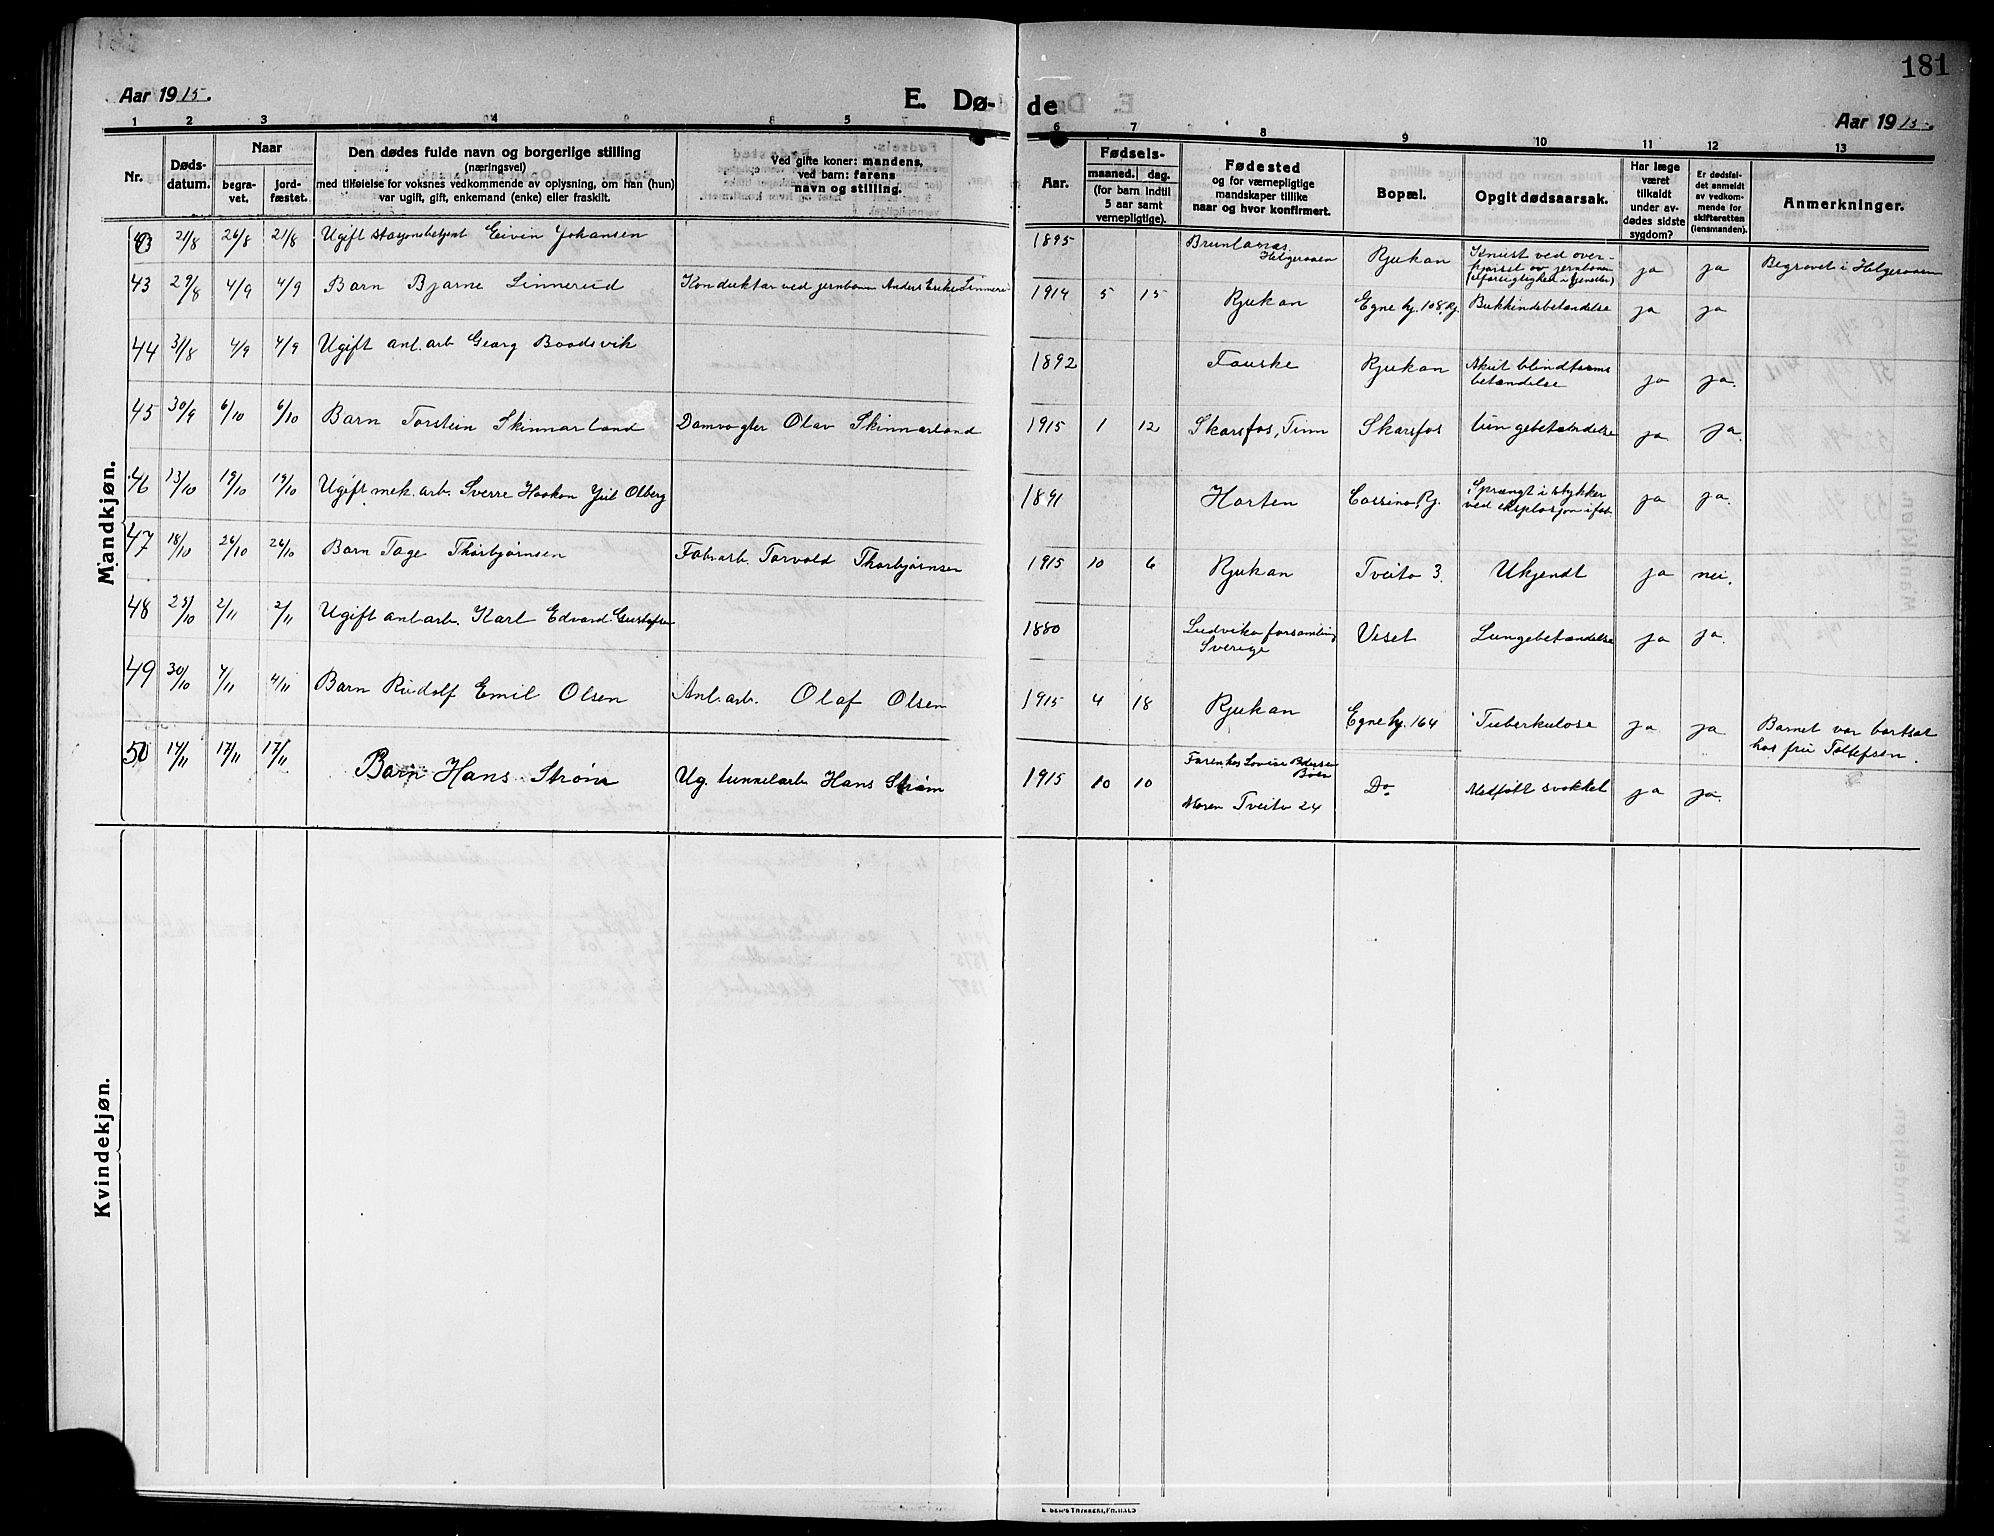 181
Aar 1915.
E. Dø-
de
Aar 1915.
1 2 3 4 5 6 7 8 9 10 11 12 13
Nr.
Døds-
datum.
Naar
begra-
vet.
jord-
fæstet.
Den dødes fulde navn og borgerlige stilling
(næringsvei)
med tilføielse for voksnes vedkommende av oplysning, om han (hun)
var ugift, gift, enkemand (enke) eller fraskilt.
Ved gifte koner: mandens,
ved barn: farens
navn og stilling.
Aar.
Fødsels-
maaned. dag.
(for barn indtil
5 aar samt
vernepligtige).
Fødested
og for værnepligtige
mandskaper tillike
naar og hvor konfirmert.
Bopæl.
Opgit dødsaarsak.
Har læge
været
tilkaldt
under av-
dødes sidste
sygdom?
Er dødsfal-
det anmeldt
av vedkom-
mende for
skifteretten
(lensmanden).
Anmerkninger.
Mandkjøn.
21/8 26/8 21/8 Ugift stasjonsbetjent Eivin Johansen 1895 Brunlanæs
Helgeroaen Rjukan Knust ved over-
kjørsel av jernbanen
(uforsigtighed i tjenesten) ja ja Begravet i Helgeroaen
43 29/8 4/9 4/9 Barn Bjarne Linnerud Konduktør ved jernbanen Anders Linnerud 1914 5 15 Rjukan Egne hj. 108, Rj. ja ja
44 31/8 4/9 4/9 Ugift anl. arb. Georg Boodsvik 1892 Fauske Rjukan Akut blindtarms
betændelse ja ja.
45 30/9 6/10 6/10 Barn Torstein Skinnarland Damvogter Olav Skinnarland 1915 1 12 Skarsfos, Tinn Skarsfos Lungebetændelse ja ja.
46 13/10 19/10 19/10 Ugift mek. arb. Sverre Haakon Juel Olberg 1891 Horten Cassino, Rj. Sprængt i stykker
ved eksplosjon i fab. ja ja.
47 18/10 26/10 26/10 Barn Tage Thorbjørnsen Fabr.arb. Torvald Thorbjørnsen 1915 10 6 Rjukan Tveito 3. Ukjendt ja nei.
48 25/10 2/11 2/11 Ugift anl.arb. Karl Edvard Gustafsen 1880 Ludvika forsamling
Sverige Veset Lungebetændelse ja ja.
49 30/10 4/11 4/11 Barn Rudolf Emil Olsen Anl.arb. Olaf Olsen 1915 4 18 Rjukan Egne hj. 164 Tuberkulose ja ja Barnet var bortsat
hos fru Tollefsen.
50 14/11 17/11 17/11 Barn Hans Strøm Ug. tunnelarb. Hans Strøm 1915 10 10 Lovise Pedersen
Bøen
Moren Tveito 24 Do Medfødt svakhet ja ja.
Kvindekjøn.